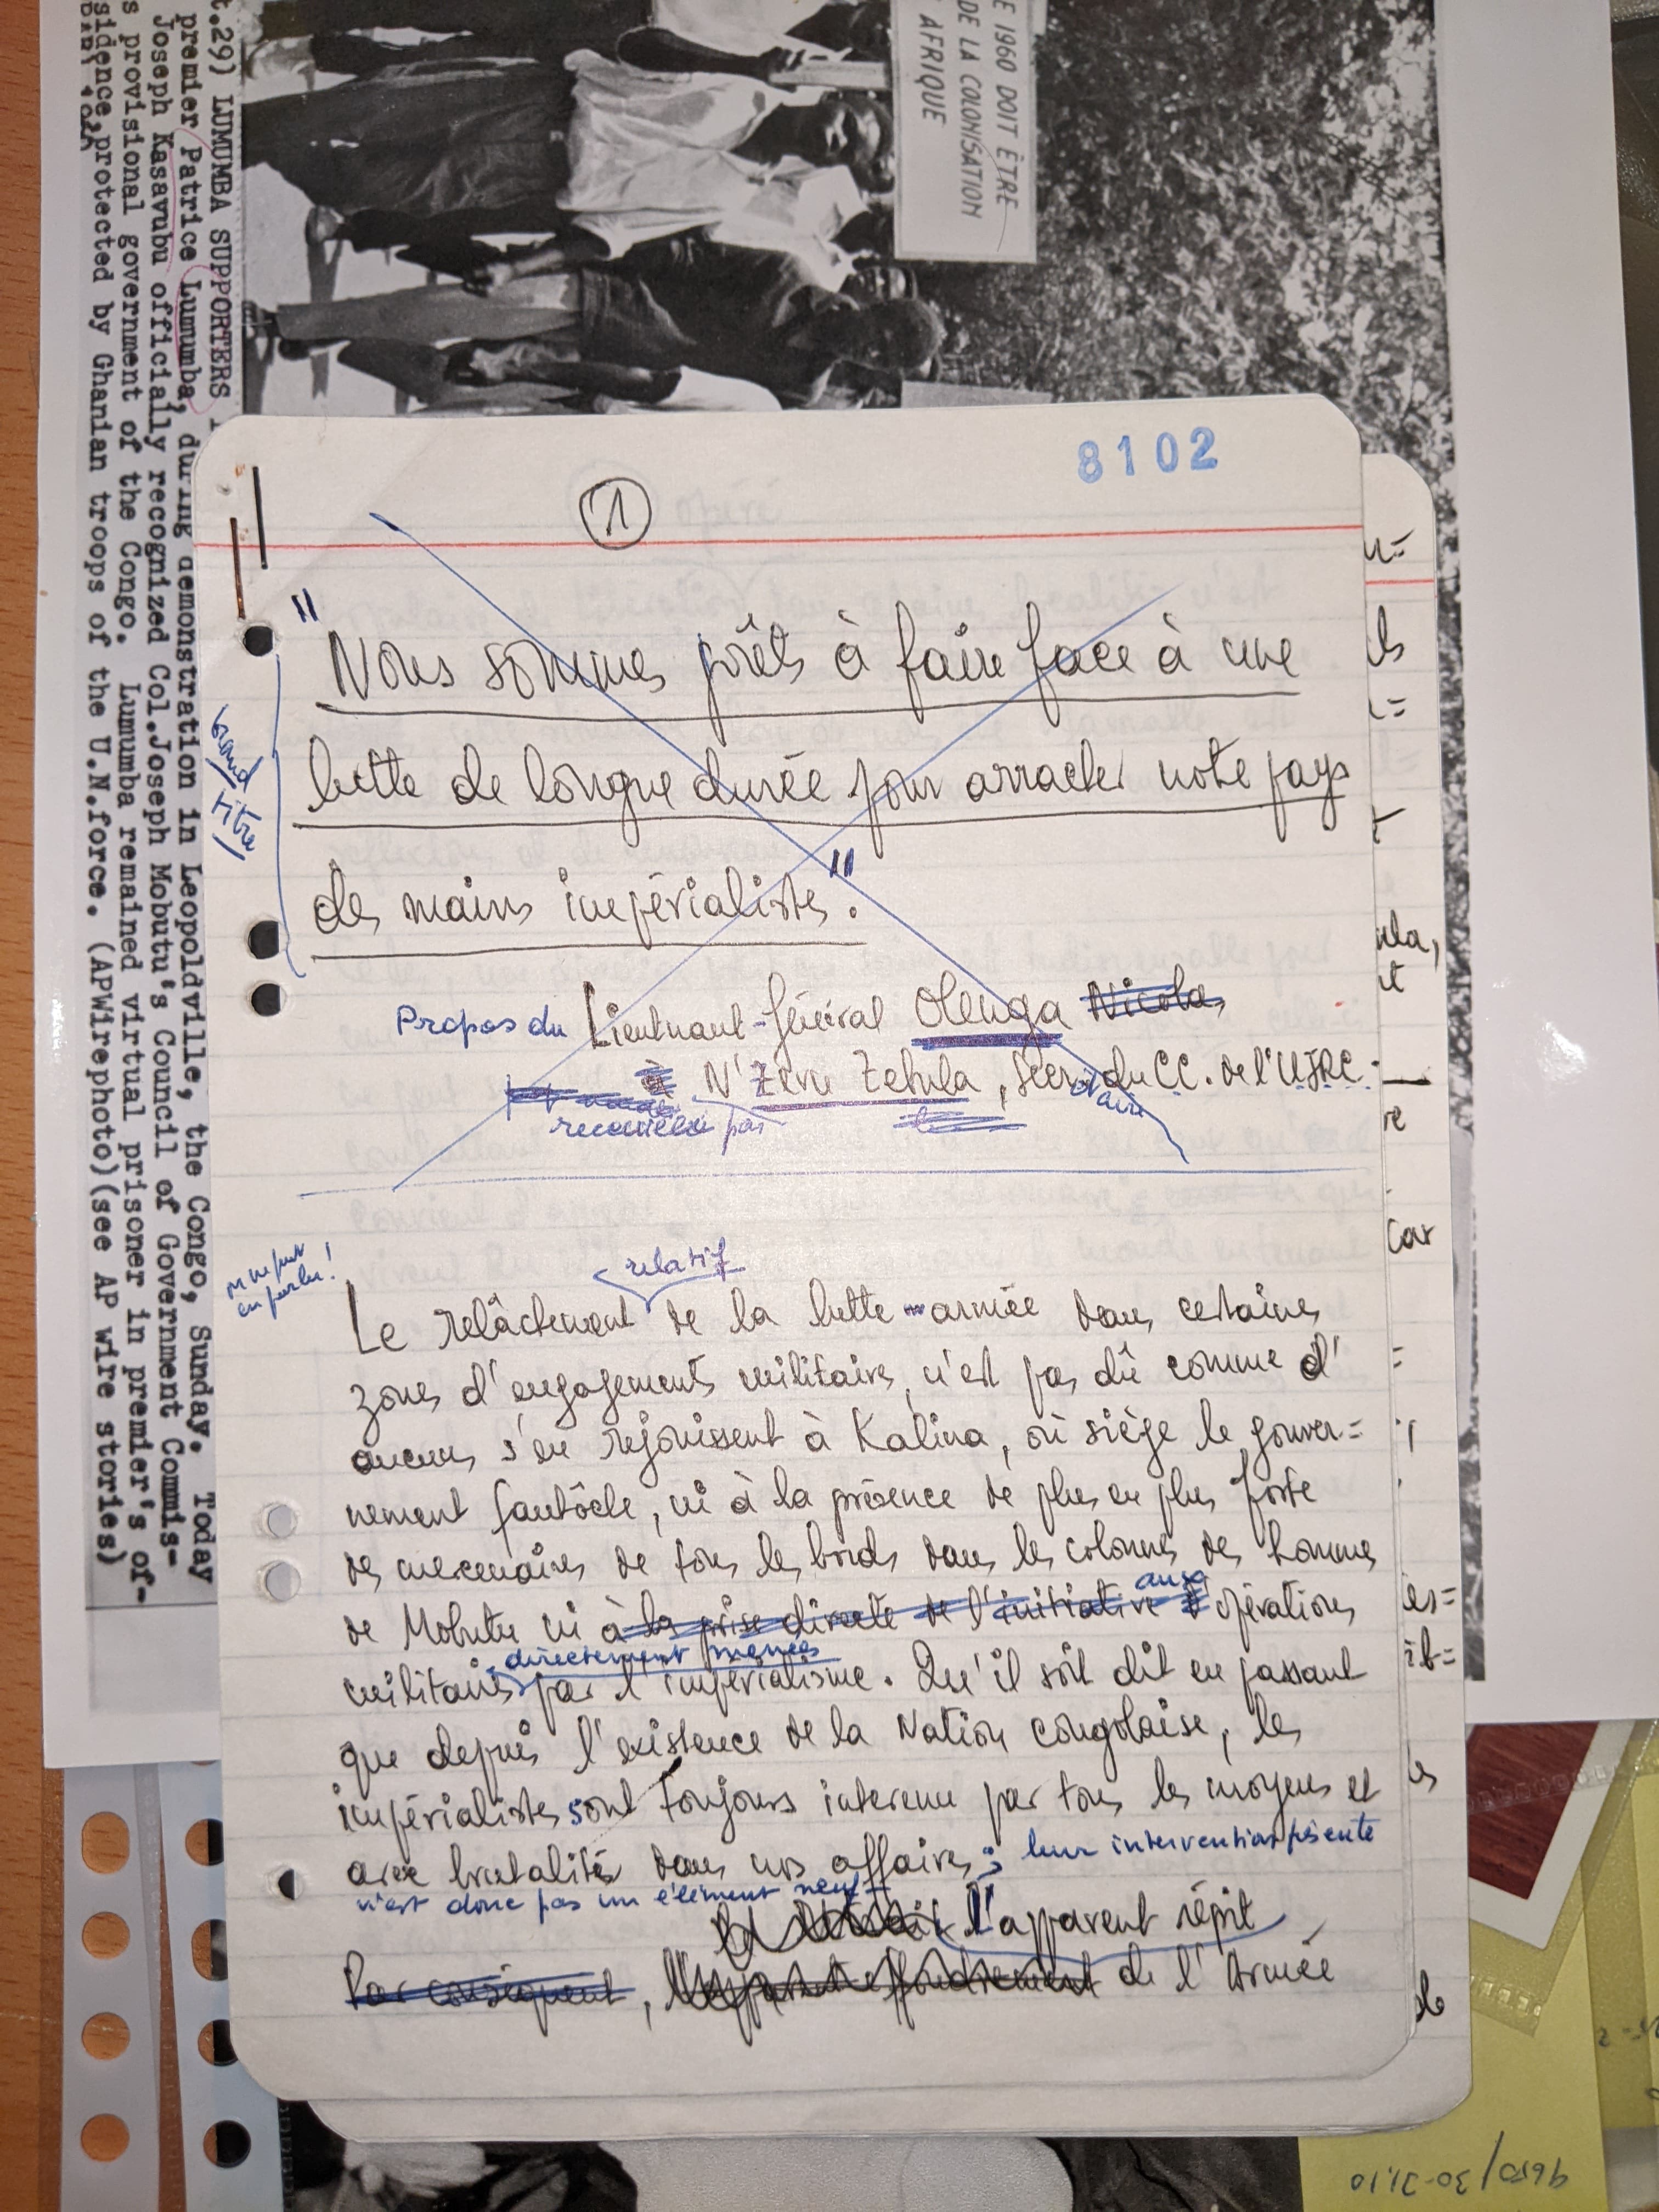 E 1960 DOIT ÊTRE
DE LA COLONISATION
AFRIQUE
t.29) LUMUMBA SUPPORTERS
premier Patrice Lumumba, during demonstration in Leopoldville, the Congo, Sunday. Today
Joseph Kasavubu officially recognized Col.Joseph Mobutu's Council of Government Commis-
s provisional government of the Congo. Lumumba remained virtual prisoner in premier's of-
sidence protected by Ghanian troops of the U.N.force. (APWirephoto)(see AP wire stories)
8102
1
"Nous sommes prêts à faire face à une
lutte de longue durée pour arracher notre pays
des mains impérialistes."
Grand
titre
Propos du Lieutnant-Général Olenga Nicolas
à N'Zeru Zebula, Secrétaire du CC. de l'UJRC.
recueillis par
on ne peut
en parler!
relatif
Le relâchement de la lutte armée dans certaines
zones d'engagements militaires, n'est pas dû comme d'
aucuns s'en rejouissent à Kalina, où siège le gouver=
nement fantôche, ni à la présence de plus en plus forte
des mercenaires de tous les bords dans les colonnes des hommes
de Mobutu ni à la prise directe de l'initiative aux opérations
directement menées
militaires par l'impérialisme. Qu'il soit dit en passant
que depuis l'existence de la Nation congolaise, les
impérialistes sont toujours intervenu par tous les moyens et
avec brutalités dans nos affaires; leur intervention présente
n'est donc pas un élément neuf.
L'apparent répit
Par conséquent, de l'Armée
u=
ls
ula,
et
re
Car
es=
ib=
es
9650/30-31.10